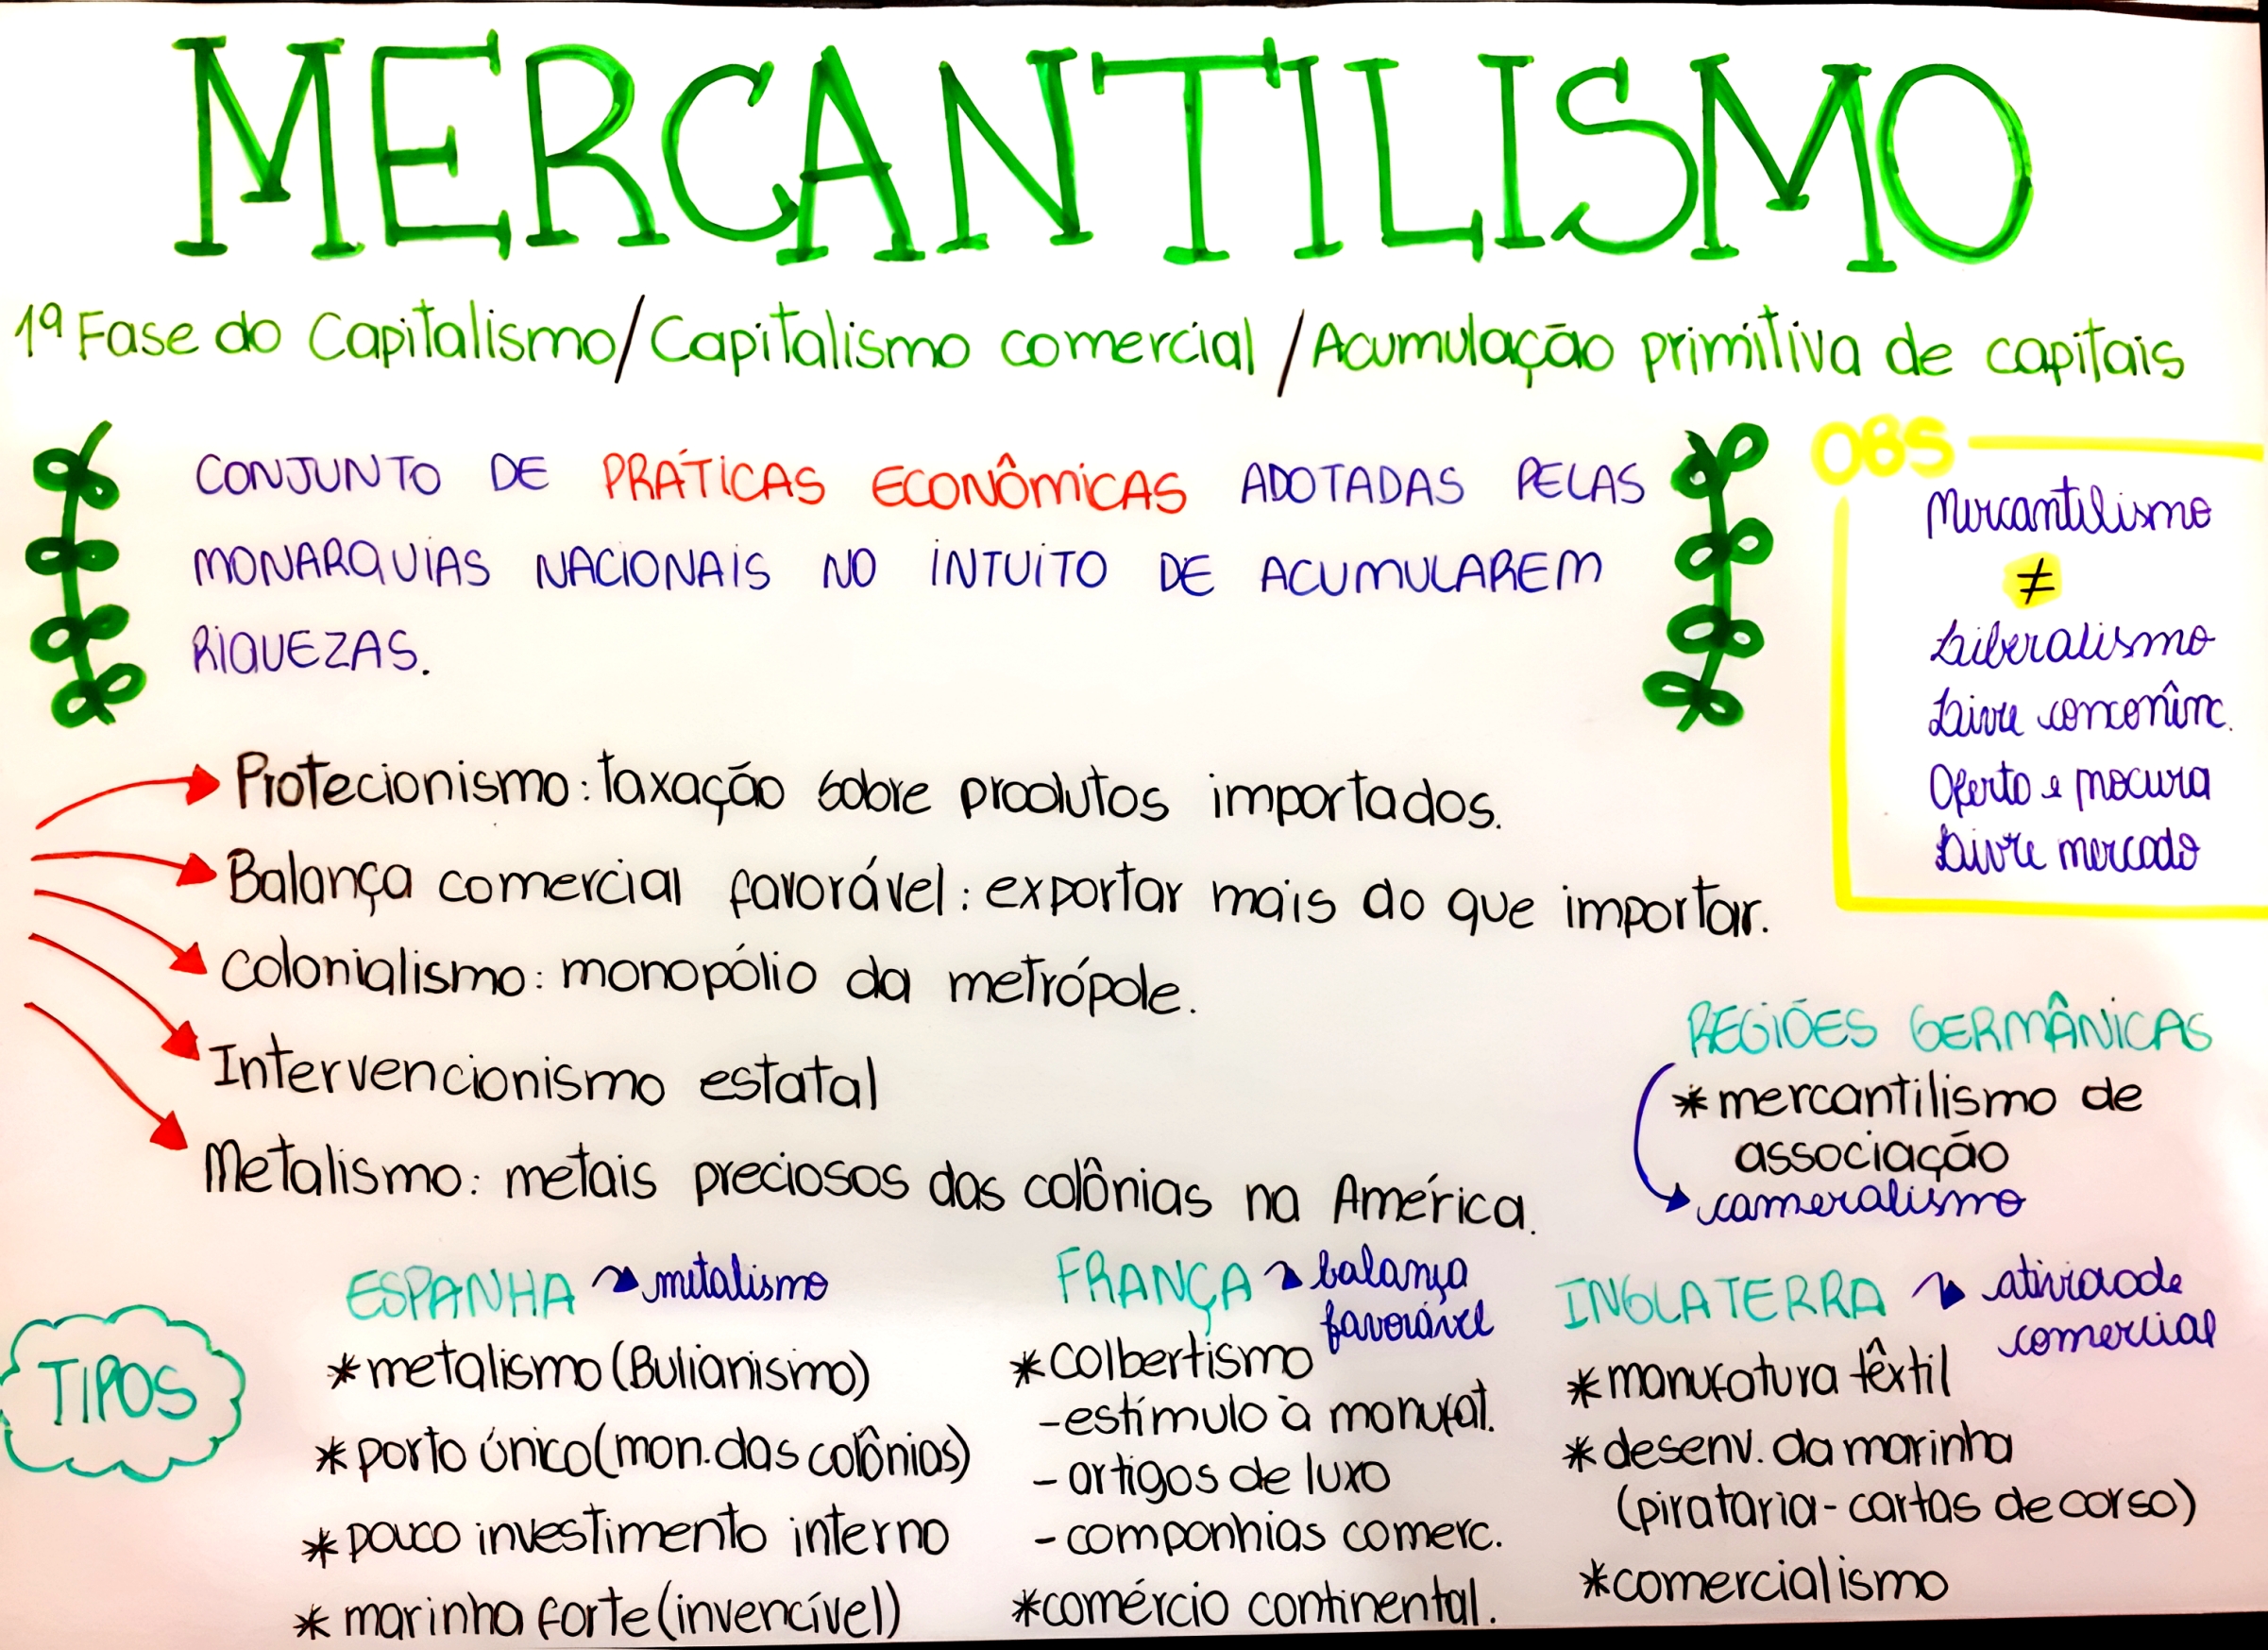 MERCANTILISMO
1ª Fase do Capitalismo/Capitalismo comercial/Acumulação primitiva de capitais
CONJUNTO DE PRÁTICAS ECONÔMICAS ADOTADAS PELAS
MONARQUIAS NACIONAIS NO INTUITO DE ACUMULAREM
RIQUEZAS.
OBS
Mercantilismo
≠
Liberalismo
Livre concorrênc.
Oferta e procura
Livre mercado
Protecionismo: taxação sobre produtos importados.
Balança comercial favorável: exportar mais do que importar.
Colonialismo: monopólio da metrópole.
Intervencionismo estatal
Metalismo: metais preciosos das colônias na América.
REGIÕES GERMÂNICAS
*mercantilismo de
associação
cameralismo
TIPOS
ESPANHA metalismo
*metalismo (Bulianismo)
*porto único (mon. das colônias)
*pouco investimento interno
*marinha forte (invencível)
FRANÇA balança
favorável
*Colbertismo
-estímulo à manufat.
-artigos de luxo
-companhias comerc.
*comércio continental.
INGLATERRA atividade
comercial
*manufatura têxtil
*desenv. da marinha
(pirataria-cartas de corso)
*comercialismo